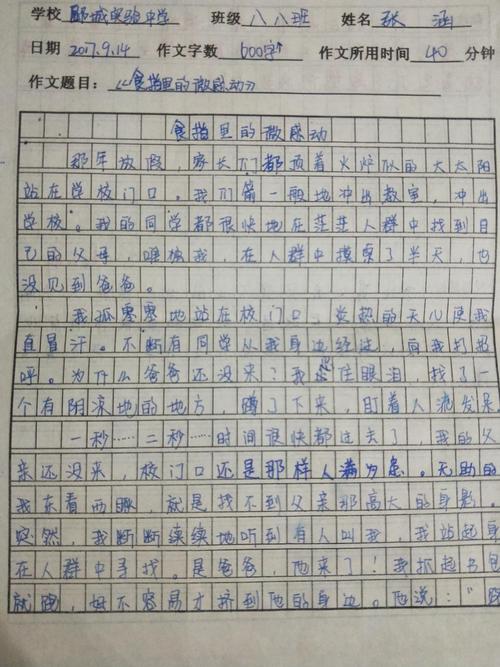 学校 郾城实验中学 班级 八八班 姓名 张涵
日期 2017.9.14 作文字数 600字 作文所用时间 40 分钟
作文题目：《食指里的微感动》
食指里的微感动
那年放假，家长们都顶着火炉似的大太阳
站在学校门口。我们箭一般地冲出教室，冲出
学校。我的同学都很快地在茫茫人群中找到自
己的父母，唯独我，在人群中摸索了半天，也
没见到爸爸。
我孤零零地站在校门口，炎热的天儿使我
直冒汗。不断有同学从我身边经过，向我打招
呼。为什么爸爸还没来？我忍住眼泪，找了一
个有阴凉地的地方，蹲了下来，盯着人流发呆
一秒……二秒……时间很快都过去了，我的父
亲还没来，校门口还是那样人满为患。无助的
我东看西瞅，就是找不到父亲那高大的身影。
突然，我断断续续地听到有人叫我，我站起身
在人群中寻找。是爸爸，他来了！我抓起书包
就跑，好不容易才挤到他的身边。他说：“